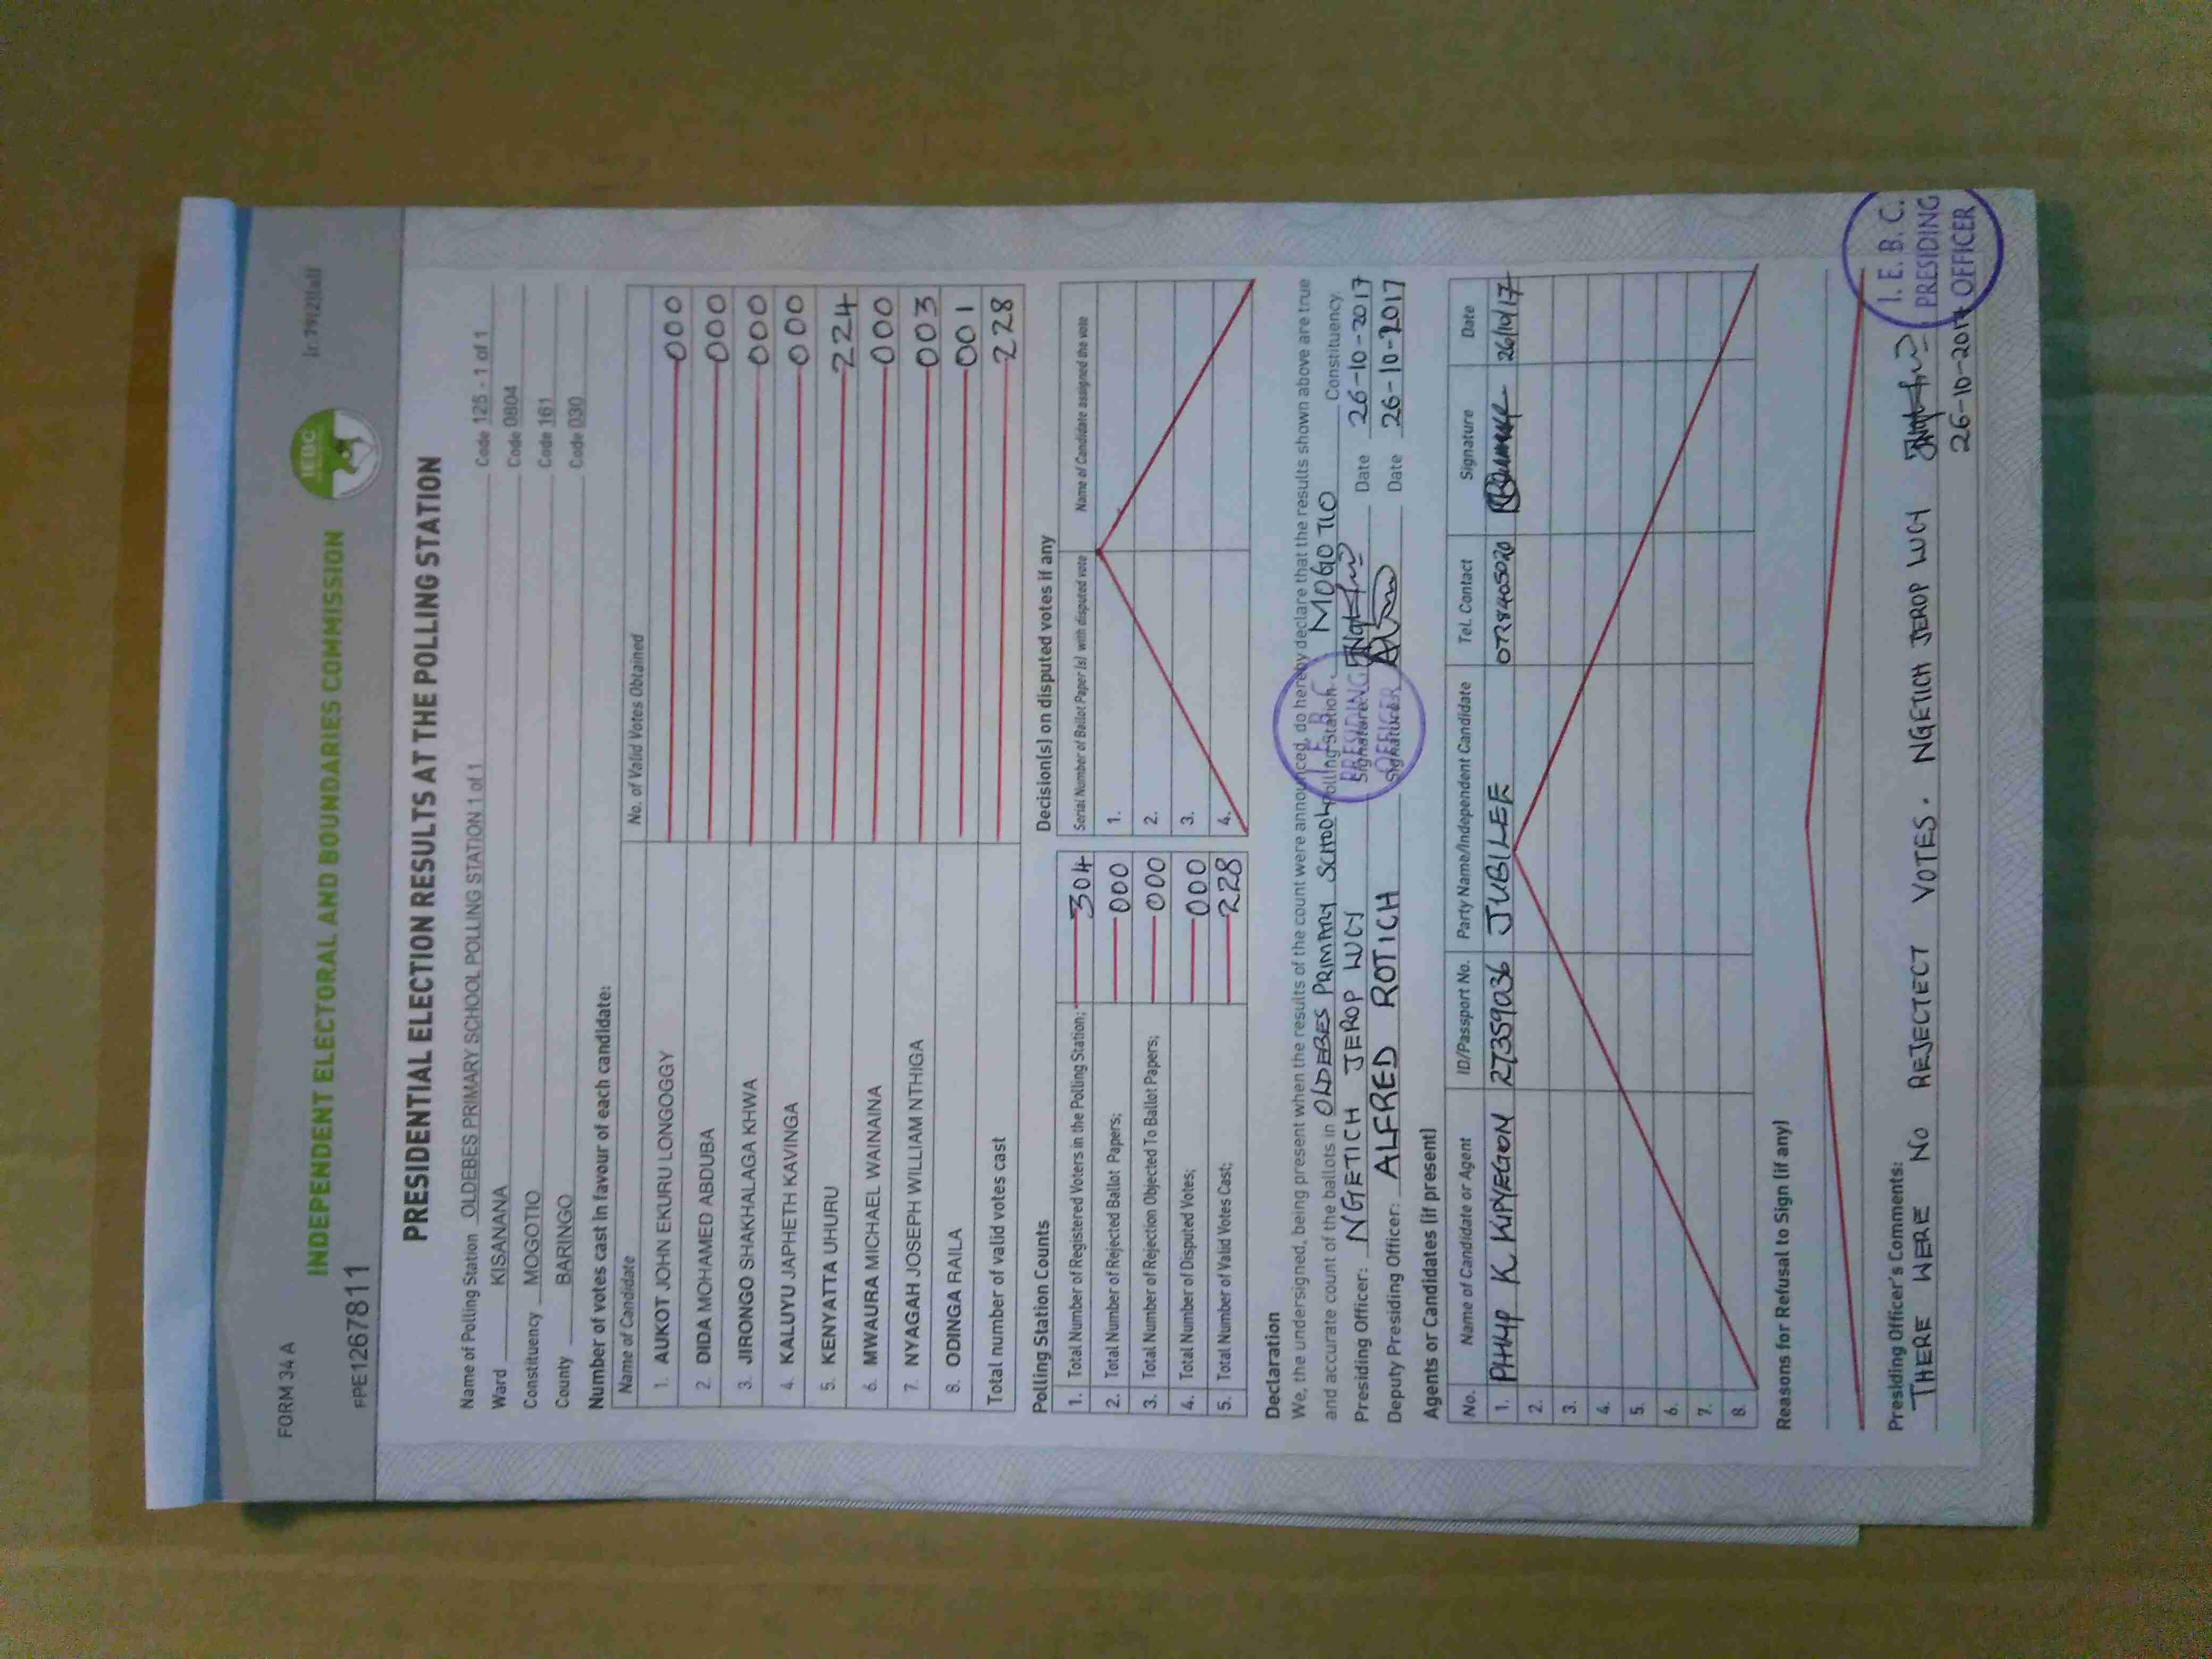 FORM 34 A
(r. 79(2)(a))
INDEPENDENT ELECTORAL AND BOUNDARIES COMMISSION
IEBC
FPE1267811
PRESIDENTIAL ELECTION RESULTS AT THE POLLING STATION
Name of Polling Station OLDEBES PRIMARY SCHOOL POLLING STATION 1 of 1 Code 125 - 1 of 1
Ward KISANANA Code 0804
Constituency MOGOTIO Code 161
County BARINGO Code 030
Number of votes cast in favour of each candidate:
Name of Candidate No. of Valid Votes Obtained
1. AUKOT JOHN EKURU LONGOGGY 000
2. DIDA MOHAMED ABDUBA 000
3. JIRONGO SHAKHALAGA KHWA 000
4. KALUYU JAPHETH KAVINGA 000
5. KENYATTA UHURU 224
6. MWAURA MICHAEL WAINAINA 000
7. NYAGAH JOSEPH WILLIAM NTHIGA 003
8. ODINGA RAILA 001
Total number of valid votes cast 228
Polling Station Counts
1. Total Number of Registered Voters in the Polling Station; 304
2. Total Number of Rejected Ballot Papers; 000
3. Total Number of Rejection Objected To Ballot Papers; 000
4. Total Number of Disputed Votes; 000
5. Total Number of Valid Votes Cast; 228
Decision(s) on disputed votes if any
Serial Number of Ballot Paper (s) with disputed vote Name of Candidate assigned the vote
1.
2.
3.
4.
Declaration
We, the undersigned, being present when the results of the count were announced, do hereby declare that the results shown above are true
and accurate count of the ballots in OLDEBES PRIMARY SCHOOL Polling Station MOGOTIO Constituency.
Presiding Officer: NGETICH JEROP LUCY Signature: Date 26-10-2017
Deputy Presiding Officer: ALFRED ROTICH Signature: Date 26-10-2017
PRESIDING
OFFICER
Agents or Candidates (if present)
No. Name of Candidate or Agent ID/Passport No. Party Name/Independent Candidate Tel. Contact Signature Date
1. PHILIP K KIPYEGON 27359036 JUBILEE 0728405020 26/10/17
2.
3.
4.
5.
6.
7.
8.
Reasons for Refusal to Sign (if any)
Presiding Officer's Comments:
THERE WERE NO REJECTECT VOTES. NGETICH JEROP LUCY
26-10-2017
I. E. B. C.
PRESIDING
OFFICER